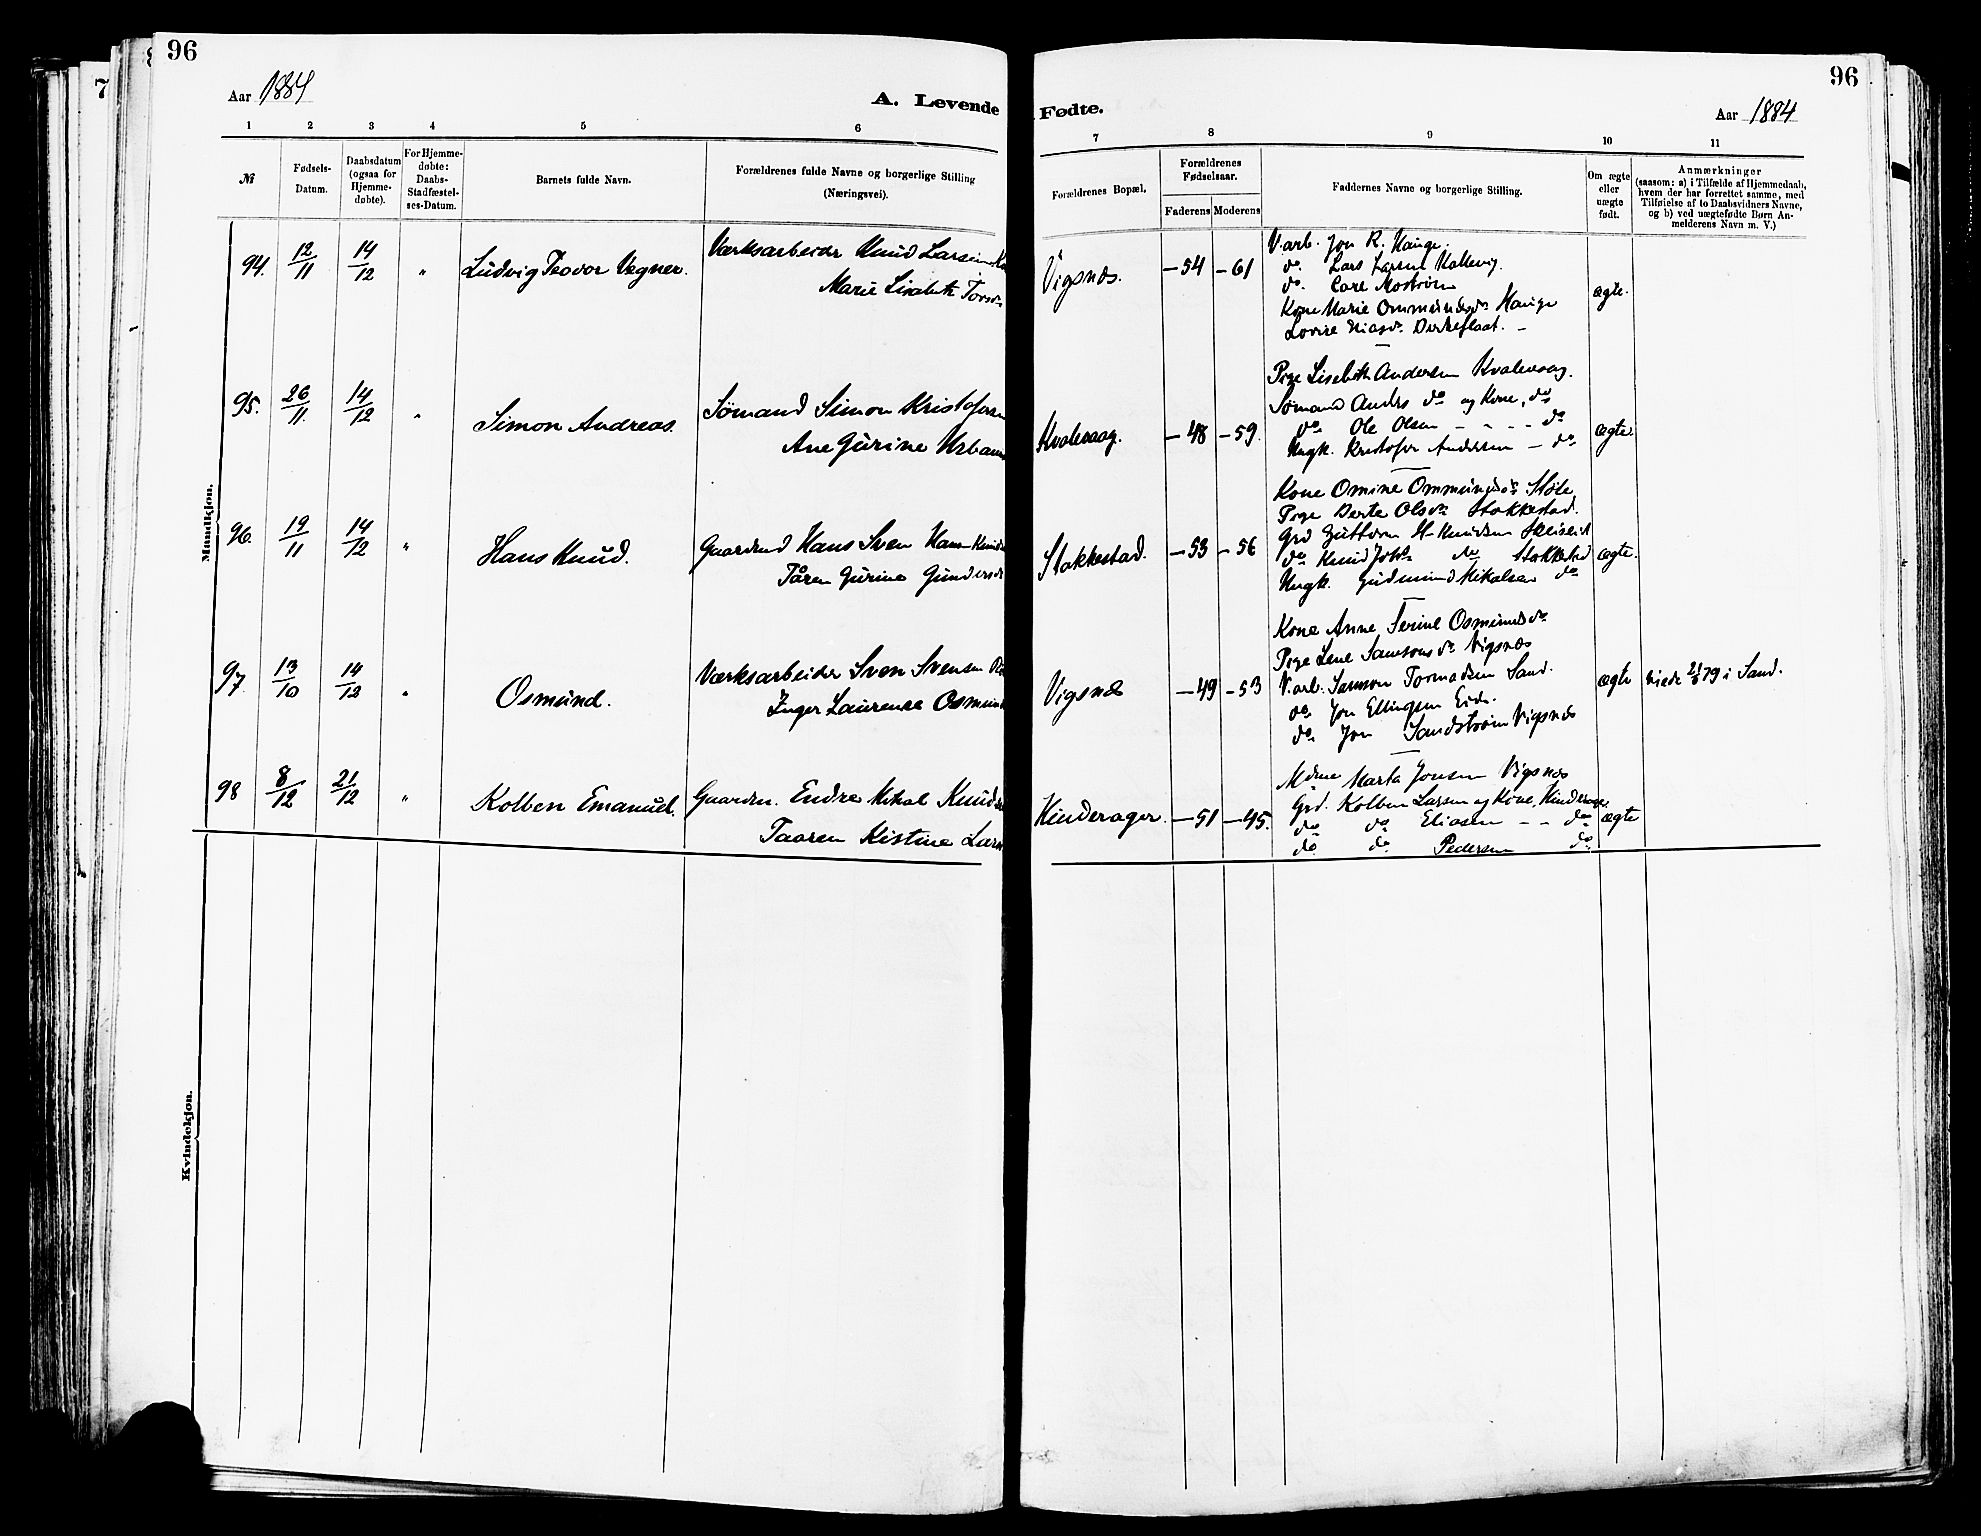 96
Aar 1884
A. Levende
1 2 3 4 5 6
№
Fødsels-
Datum.
Daabsdatum
(ogsaa for
Hjemme-
døbte).
For Hjemme-
døbte:
Daabs-
Stadfæstel-
ses-Datum.
Barnets fulde Navn.
Forældrenes fulde Navne og borgerlige Stilling
(Næringsvei).
Mandkjøn.
94. 12/11 14/12 " Ludvig Teodor Vegner.
Værksarbeider Knud Larsen
Marie Lisabeth
95. 26/11. 14/12 " Simon Andreas.
Sømand Simon Kristofersen
Ane Gurine
96. 19/11 14/12 " Hans Knud.
Gaardmd Hans Sven
Tåren Gurine Gundersd
97. 13/10 14/12 " Osmund.
Værksarbeider Sven Svensen
Inger Laurense Osmund
98 8/12 21/12 " Kolben Emanuel.
Gaardm. Endre Mikal Knuds
Taaren Kistine Lars
Kvindekjøn.
Fødte.
96
Aar 1884
7 8 9 10 11
Forældrenes Bopæl.
Forældrenes
Fødselsaar.
Faderens Moderens
Faddernes Navne og borgerlige Stilling.
Om ægte
eller
uægte
født.
Anmærkninger
(saasom: a) i Tilfælde af Hjemmedaab,
hvem der har forrettet samme, med
Tilføielse af to Daabsvidners Navne,
og b) ved uægtefødte Børn An-
melderens Navn m. V.)
Vigsnæs. -54 -61 ægte.
V.arb. Jon R. Hauge.
do. Lars Larsen Kallevig.
do. Carl Mostrøm
Kone Marie Ommundsd. Hauge
Lovise
Kvalevaag. -48 -59. ægte.
Pige Lisebeth Andersen Kvalevaag.
Sømand Anders do og Kone, do
do. Ole Olsen - - - - do
Ungk. Kristofer Andersen - do
Stokkestad. -53 -56 ægte.
Kone Omine Ommundsdr. Støle
Pige Berte Olsdr. Stokkestad.
Grd Guttorm H. Knudsen
do Knud Johs. do Stokkestad
Ungk. Gudmund Mikalsen do
Vigsnæs -49 -53 ægte viede 79 i Sand.
Kone Anne Serine Osmundsdr
Pige Lene Samsonsdr Vigsnæs
V.arb. Samson Tormodsen Sand.
do. Jon Ellingsen Eide.
do. Jon Sandstrøm Vigsnæs
Hinderager. -51 -45. ægte
Marta Jonsen Vigsnæs
Grd. Kolben Larsen og Kone, Hinderager
do do Eliasen - - do
do. do Pedersen do.